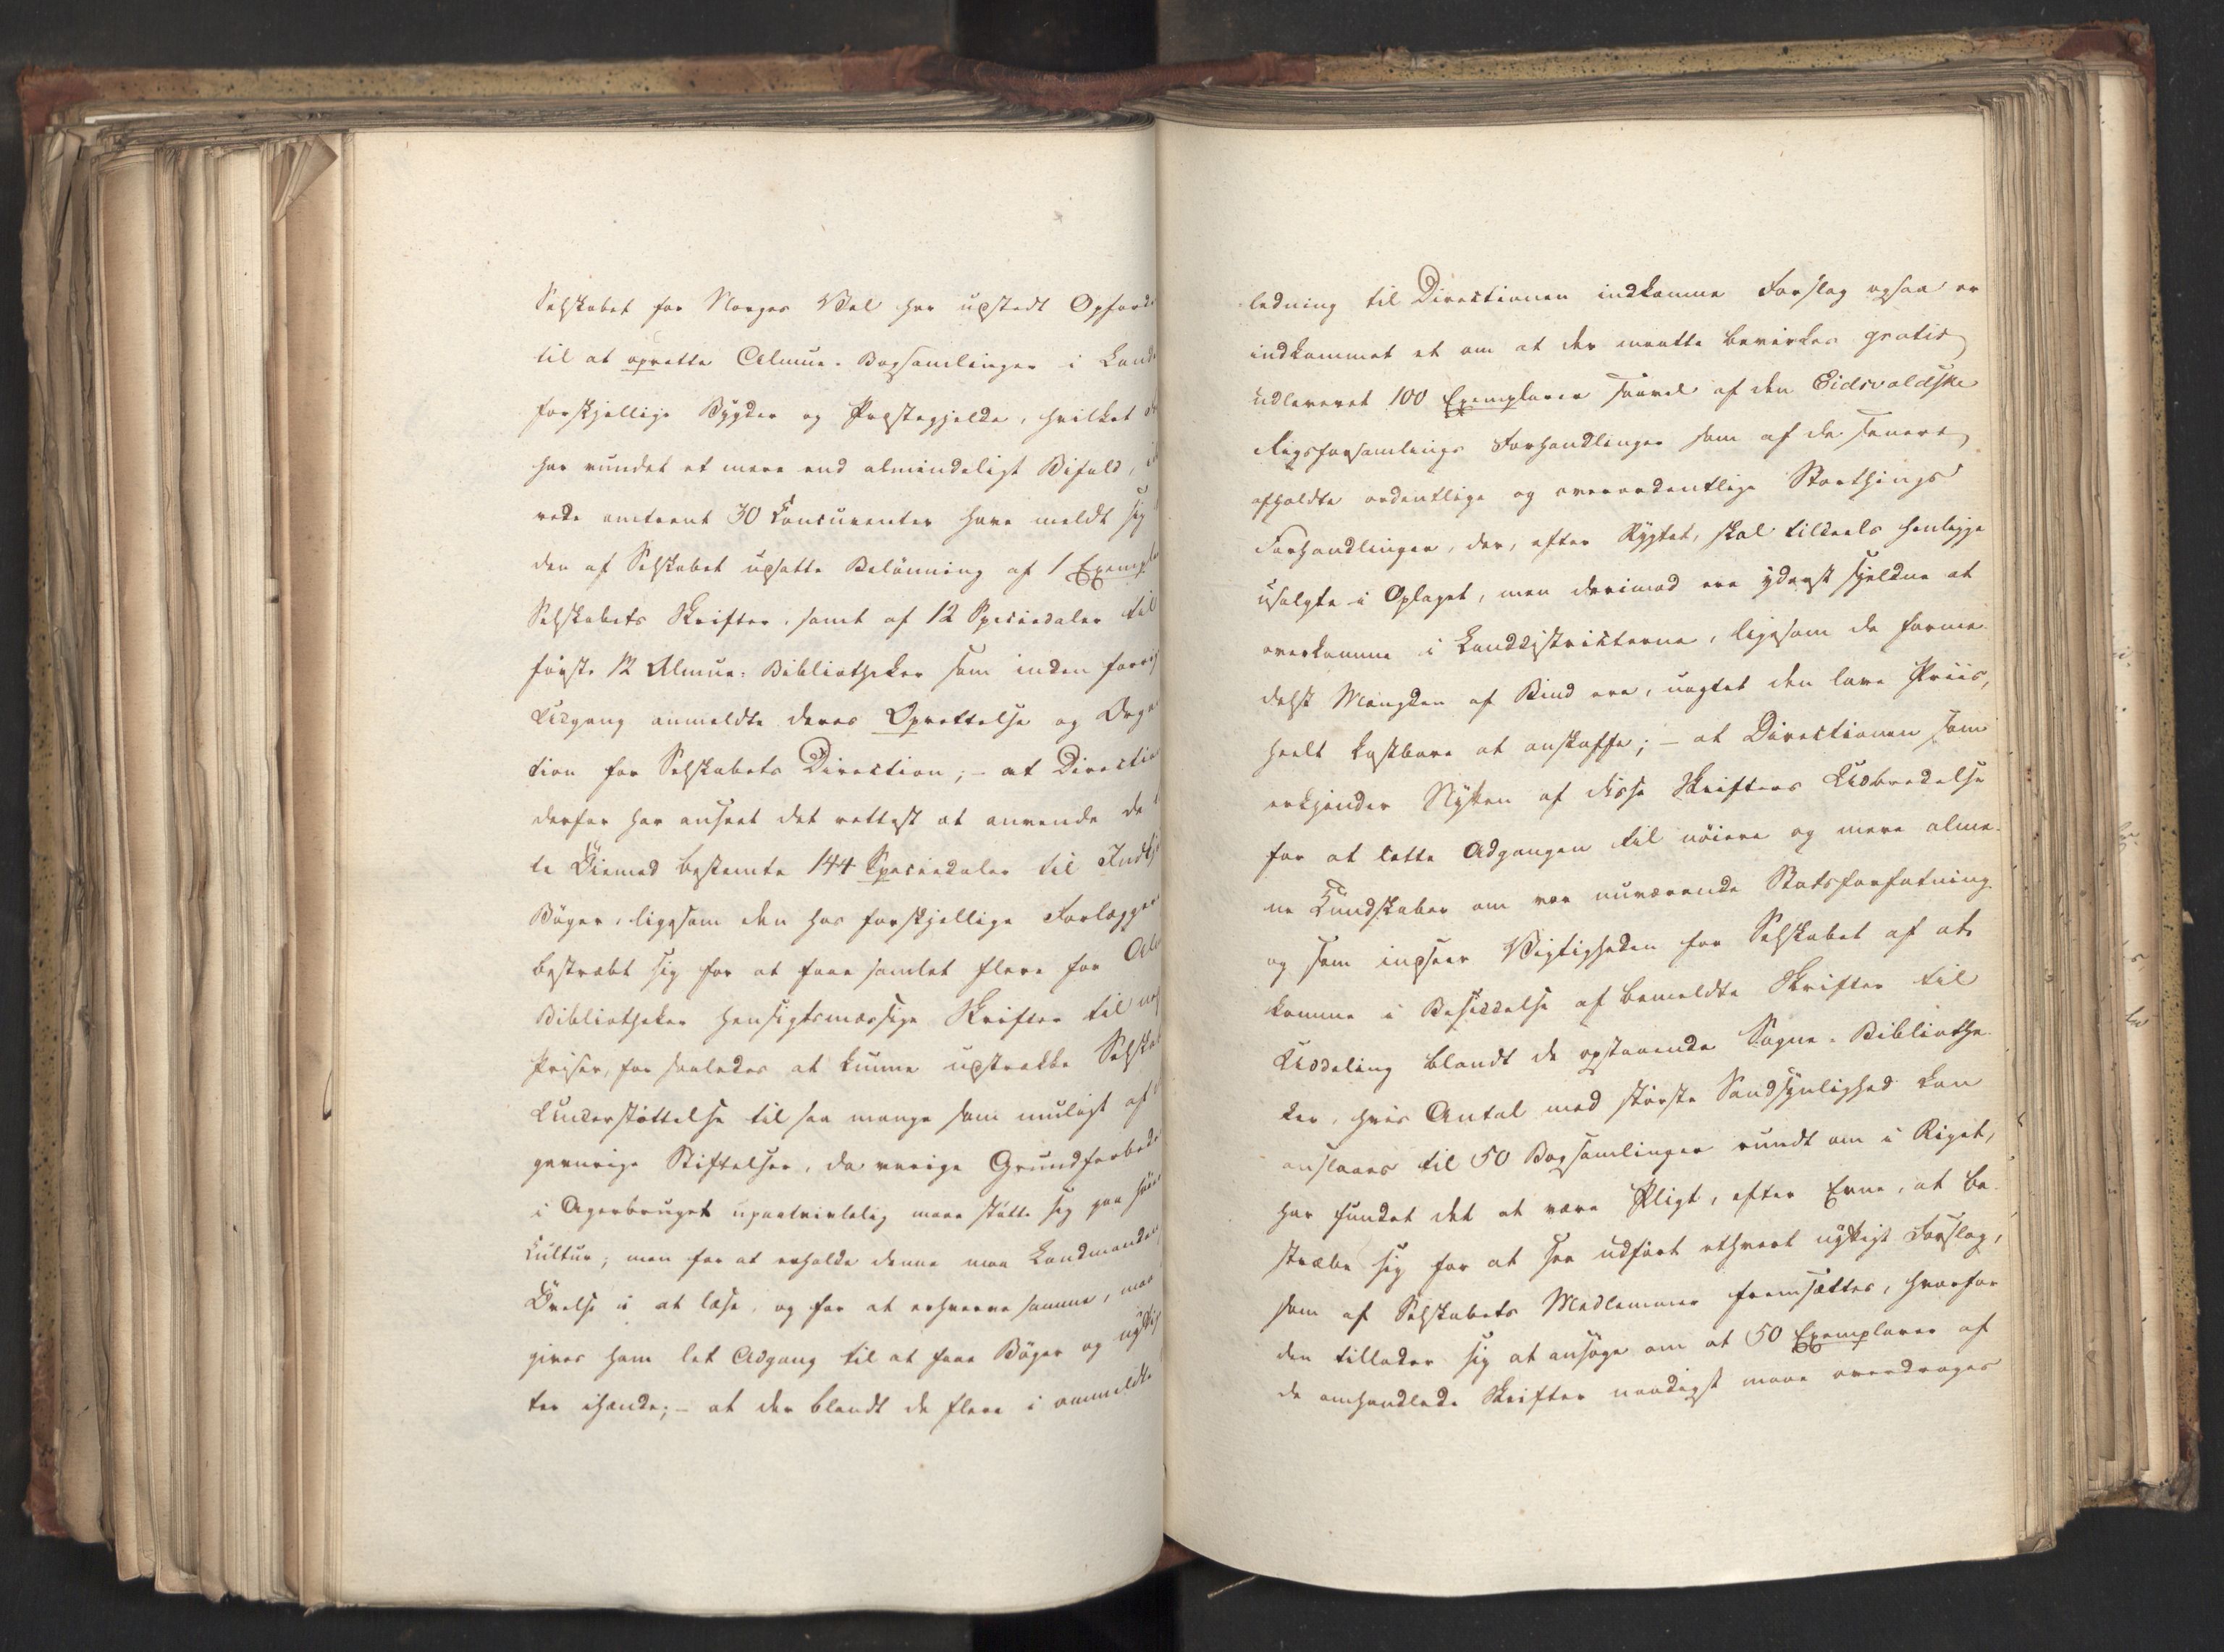 Selskabet for Norges Vel har udstedt Opford
til at oprette Almue-Bogsamlinger i Land
forskjellige Bygder og Præstegjelde, hvilket
har vundet et mere end almindeligt Bifald,
rede omtrent 30 Concurrenter have meldt sig
den af Selskabet udsatte Belönning af 1 Exempl
Selskabets Skrifter, samt af 12 Speciedaler til
förste 12 Almue-Bibliotheker som inden
Udgang anmeldte deres Oprettelse og Orga
tion for Selskabets Direction; – at Directio
derfor har anseet det rettest at anvende de
te Öiemed bestemte 144 Speciedaler til Indkj
Böger, ligesom den hos forskjellige Forlægger
bestræbt sig for at faae samlet flere for Al
Bibliotheker hensigtsmæssige Skrifter til
Priser, for saaledes at kunne udstrække Selska
Understöttelse til saa mange som muligt af
gavnrige Stiftelser, da varige Grundforbed
i Agerbruget upaatvivlelig maae stötte sig paa
Cultur; men for at erholde denne maa Landmanden
Övelse i at læse, og for at erhverve samme, maa
gives ham let Adgang til at faae Böger og nyttig
ter ihænde; – at der blandt de flere i anmeldte
ledning til Directionen indkomne Forslag ogsaa er
indkommet et om at der maatte bevirkes gratis
udleveret 100 Exemplarer saavel af den Eidsvoldske
Rigsforsamlings Forhandlinger som af de senere
afholdte ordentlige og overordentlige Storthings
Forhandlinger, der, efter Rygtet, skal tildeels henligge
usolgte i Oplaget, men derimod ere yderst sjeldne at
overkomme i Landdistricterne, ligesom de forme-
delst Mængden af Bind ere, uagtet den lave Priis,
heelt kostbare at anskaffe; – at Directionen som
erkjender Nytten af disse Skrifters Udbredelse
for at lette Adgangen til nöiere og mere alme-
ne Kundskaber om vor nuværende Statsforfatning
og som indseer Vigtigheden for Selskabet af at
komme i Besiddelse af bemeldte Skrifter til
Uddeling blandt de opstaaende Sogne-Bibliothe-
ker, hvis Antal med störste Sandsynlighed kan
anslaaes til 50 Bogsamlinger rundt om i Riget,
har fundet det at være Pligt, efter Evne, at be-
stræbe sig for at see udfört ethvert nyttigt Forslag,
som af Selskabets Medlemmer fremsættes, hvorfor
den tillader sig at ansöge om at 50 Exemplarer af
de omhandlede Skrifter naadigst maae overdrages